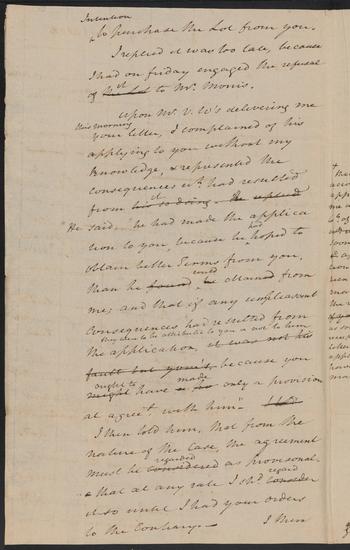 Intention
to purchase the Lot from you.
I replied it was too late, because
I had on friday engaged the refusal
of it the Lot to Mr. Morris.
Upon Mr. V. W's delivering me
this morning
your letter, I complained of his
applying to you without my
Knowledge, & represented the
consequences wch. had resulted
from it his so doing. He replied
"He said "he had made the applica
tion to you, because he had hoped to
obtain better Terms from you,
than he found, he could obtained from
me; and that if any unpleasant
Consequences had resulted from
they were to be attributed to you & not to him
the application, it was not his
fault but your's, because you
ought to made
might have a no only a provision
al agreet. with him."
I then told him, that from the
nature of the Case, the agreement
regarded
must be considered as provisional
regard
& that at any rate I shd. consider
it so until I had your orders
to the Contrary.—
I then